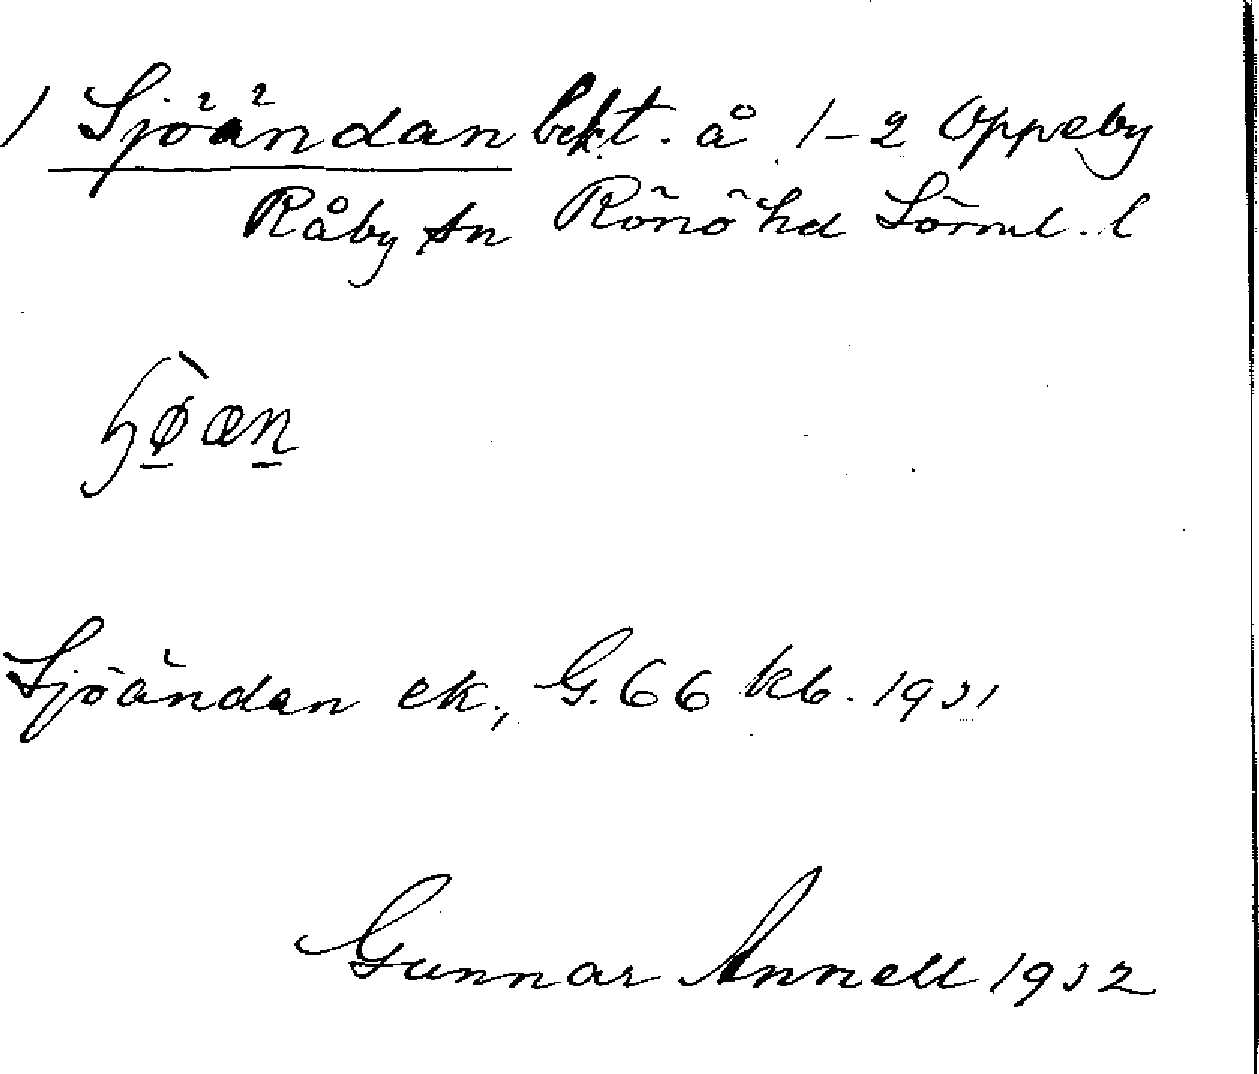 / Sjöändan bekt. å 1-2 Oppeby
Råby sn Rönö hd Sörml. l
Sjöändan ek., G. 66 kb. 1931
Gunnar Annell 1932